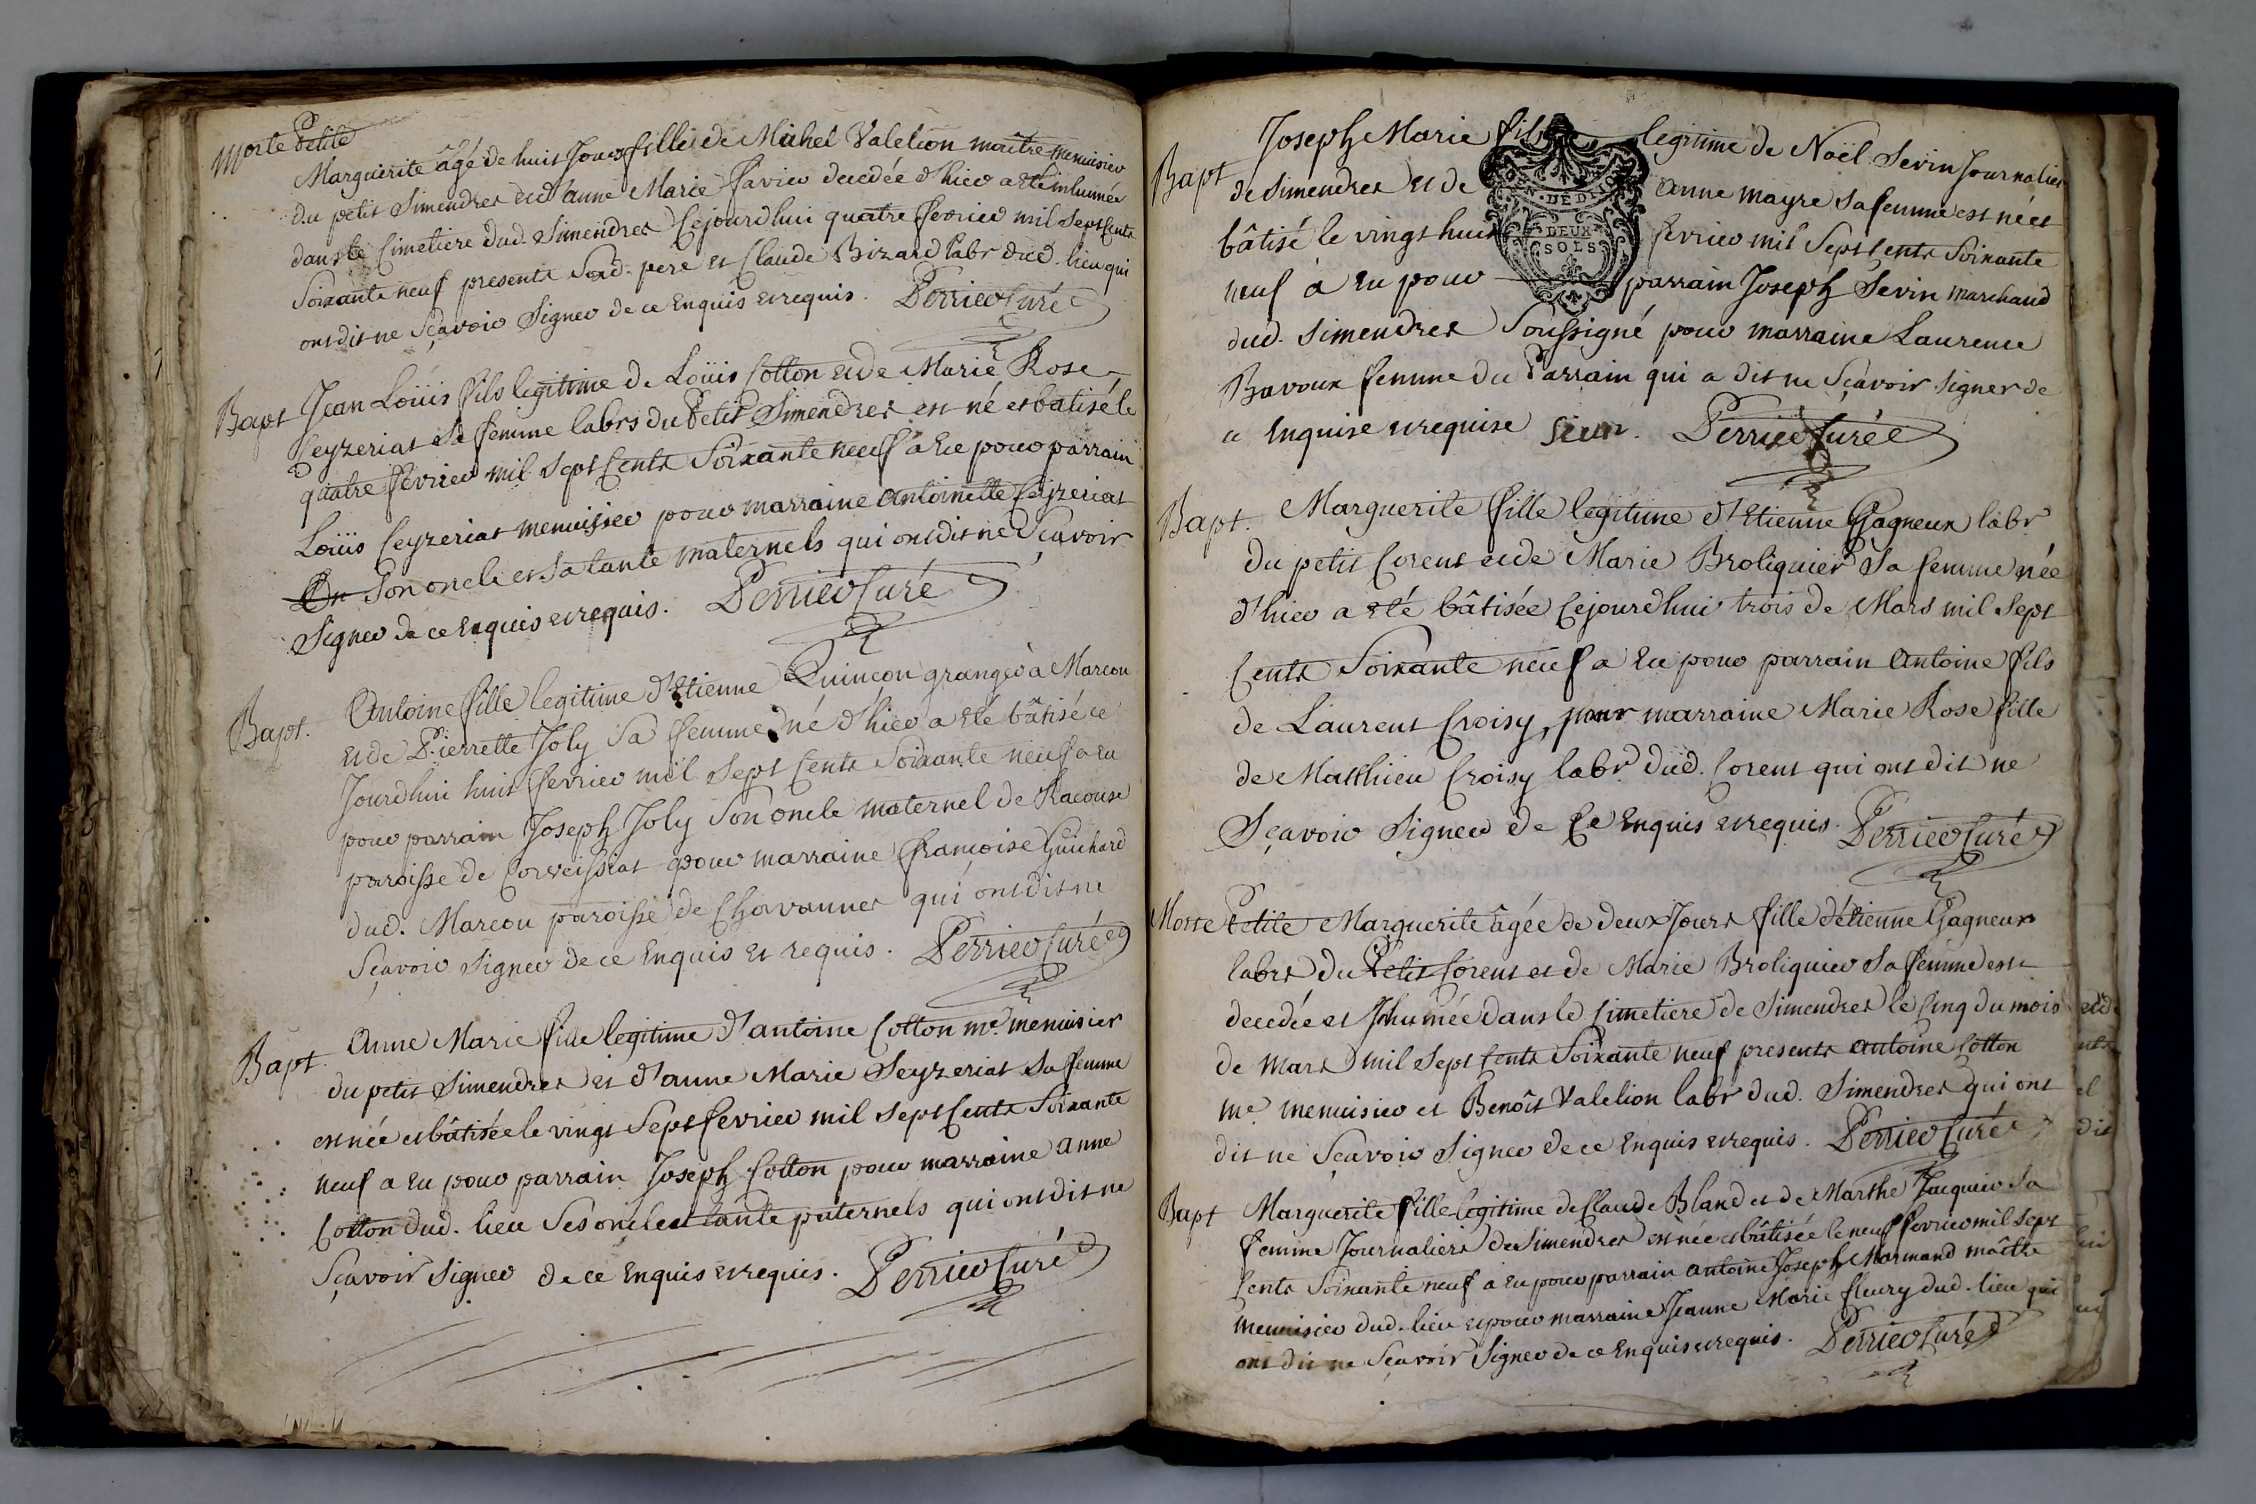 Morte Petite
Marguerite âgé de huit Jours fille de Michel Valelion maître menuisier
du petit Simendres et d'anne Marie Favier decedée d'hier a eté inhumée
dans le Cimetiere dud. Simendres Cejourdhui quatre fevrier mil sept Cents
Soixante neuf presents Sond. pere et Claude Bizard labr dud. lieu qui
ont dit ne Sçavoir Signer de ce Enquis et requis. Perrier Curé
Bapt Jean Loüis fils legitime de Loüis Cotton et de Marie Rose
Ceyzeriat Sa femme labrs du Petit Simendres est né et batisé le
quatre fevrier mil sept Cents Soixante neuf a Eu pour parrain
Loüis Ceyzeriat menuisier pour marraine antoinette Ceyzeriat
Son oncle et Sa tante maternels qui ont dit ne Scavoir
Signer de ce Enquis et requis. Perrier Curé
Bapt. Antoine fille legitime d'Etienne Quinçon granger à Marcou
et de Pierrette Joly Sa femme né d'hier a eté bâtisé ce
Jourdhui huit fevrier mil Sept Cents Soixante neuf a eu
pour parrain Joseph Joly Son oncle maternel de Racouse
paroisse de Corveissiat pour marraine françoise Guichard
dud. Marcou paroisse de Chavannes qui ont dit ne
Sçavoir Signer de ce Enquis et requis. Perrier Curé
Bapt. Anne Marie fille legitime d'antoine Cotton me. menuisier
du petit Simendres et d'anne Marie Seyzeriat Sa femme
est née et bâtisée le vingt Sept fevrier mil sept Cents Soixante
neuf a Eu pour parrain Joseph Cotton pour marraine anne
Cotton dud. lieu Ses oncle et tante paternels qui ont dit ne
Sçavoir Signer de ce Enquis et requis. Perrier Curé
Joseph Marie fils legitime de Noël Sevin Journalier
Bapt de Simendres et de anne mayre Sa femme est né et
GEN. DE DIJON
DEUX
SOLS
bâtisé le vingt huit fevrier mil Sept Cents Soixante
neuf a Eu pour parrain Joseph Sevin marchand
dud. Simendres Soussigné pour marraine Laurence
Bavoux femme du Parrain qui a dit ne Sçavoir signer de
ce Enquise et requise Sevin. Perrier Curé
Bapt. Marguerite fille legitime d'Etienne Gagneux labr
du petit Corent et de Marie Broliquier Sa femme née
d'hier a eté bâtisée Cejourdhui trois de Mars mil Sept
Cents Soixante neuf a Eu pour parrain Antoine fils
de Laurent Croisy, pour marraine Marie Rose fille
de Matthieu Croisy labr dud. Corent qui ont dit ne
Sçavoir Signer de Ce Enquis et requis. Perrier Curé
Morte Petite Marguerite âgée de deux Jours fille d'étienne Gagneux
labrs du Petit Corent et de Marie Broliquier Sa femme est
decedée et Inhumée dans le Cimetiere de Simendres le Cinq du mois
de Mars mil Sept Cents Soixante neuf presents antoine Cotton
me. menuisier et Benoît Valelion labr dud. Simendres qui ont
dit ne Sçavoir Signer de ce Enquis et requis. Perrier Curé
Bapt Marguerite fille legitime de Claude Bland et de Marthe Jacquier Sa
femme Journaliers de Simendres est née et bâtisée le neuf fevrier mil Sept
Cents Soixante neuf a Eu pour parrain antoine Joseph Marmand maître
menuisier dud. lieu et pour marraine Jeanne Marie fleury dud. lieu qui
ont dit ne Sçavoir Signer de ce Enquis et requis. Perrier Curé